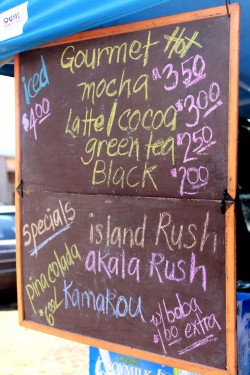 Gourmet Hot
iced
$4.00
mocha $3.50
Latte/cocoa $3.00
green tea $2.50
Black $2.00
Specials
island Rush
akala Rush
Kamakou
pina colada
$6.00
w/boba
$1.00 extra